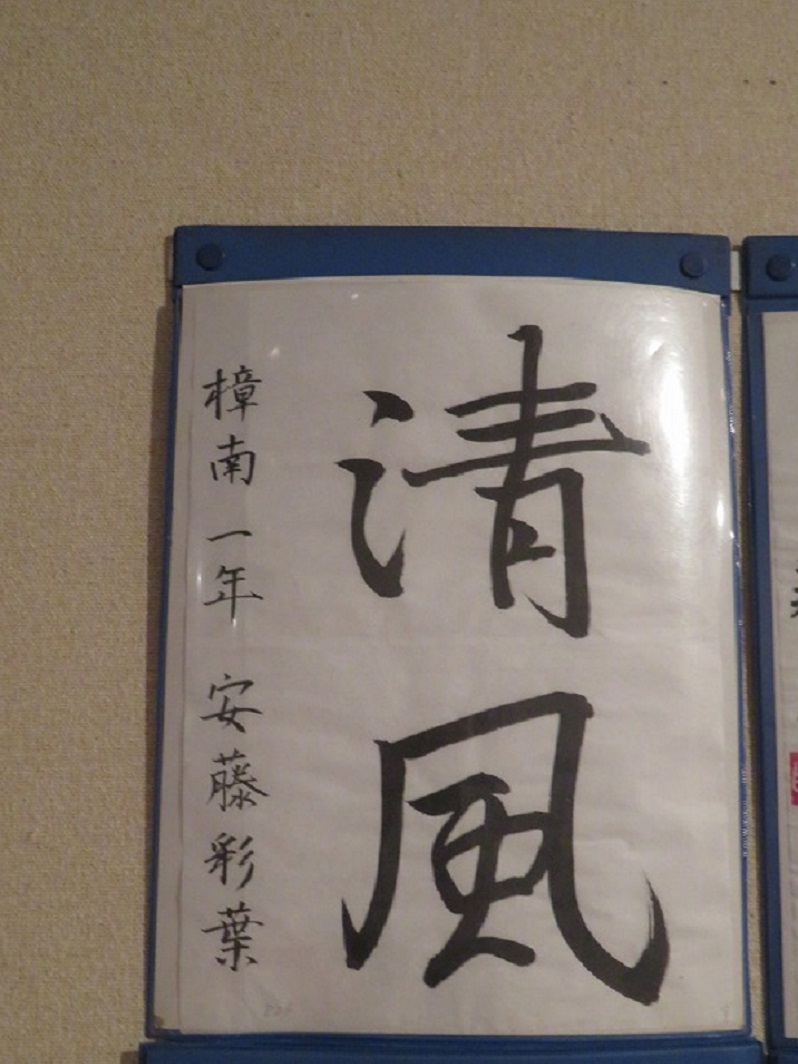 清風
樟南 一年 安藤彩葉